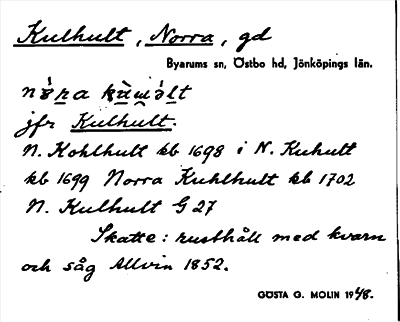 Kulhult, Norra, gd
Byarums sn, Östbo hd, Jönköpings län.
jfr Kulhult.
N. Kohlhult kb 1698 i N. Kuhult
kb 1699 Norra Kuhlhult kb 1702
N. Kulhult G 27
Skatte: rusthåll med kvarn
och såg Allvin 1852.
GÖSTA G. MOLIN 1948.